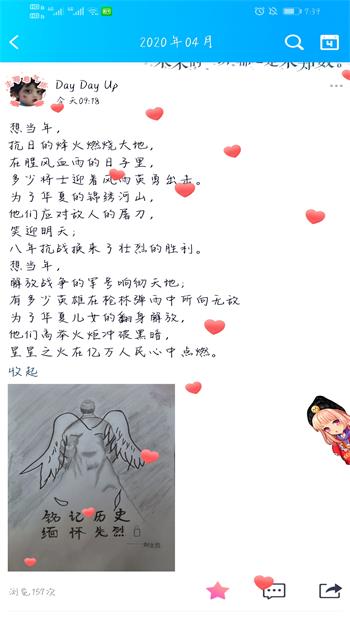 7:39
2020年04月
4
Day Day Up
今天09:18
想当年，
抗日的烽火燃烧大地，
在腥风血雨的日子里，
多少将士迎着风雨英勇出击。
为了华夏的锦绣河山，
他们应对敌人的屠刀，
笑迎明天；
八年抗战换来了壮烈的胜利。
想当年，
解放战争的军号响彻天地；
有多少英雄在枪林弹雨中所向无敌
为了华夏儿女的翻身解放，
他们高举火炬冲破黑暗，
星星之火在亿万人民心中点燃。
收起
铭记历史
缅怀先烈
浏览157次